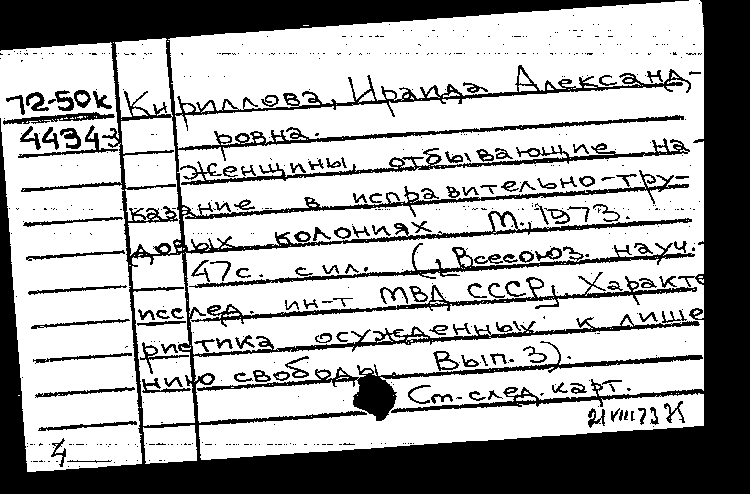 72-50к Кириллова, Ираида Александ-
4434-3 ровна.
Женщины, отбывающие на-
казание в исправительно-тру-
довых колониях. М., 1973.
47с. с ил. ([Всесоюз. науч.-
исслед. ин-т МВД СССР]. Характе
ристика осужденных к лише
нию свободы. Вып. 3).
См. след. карт.
21 VIII 73
4